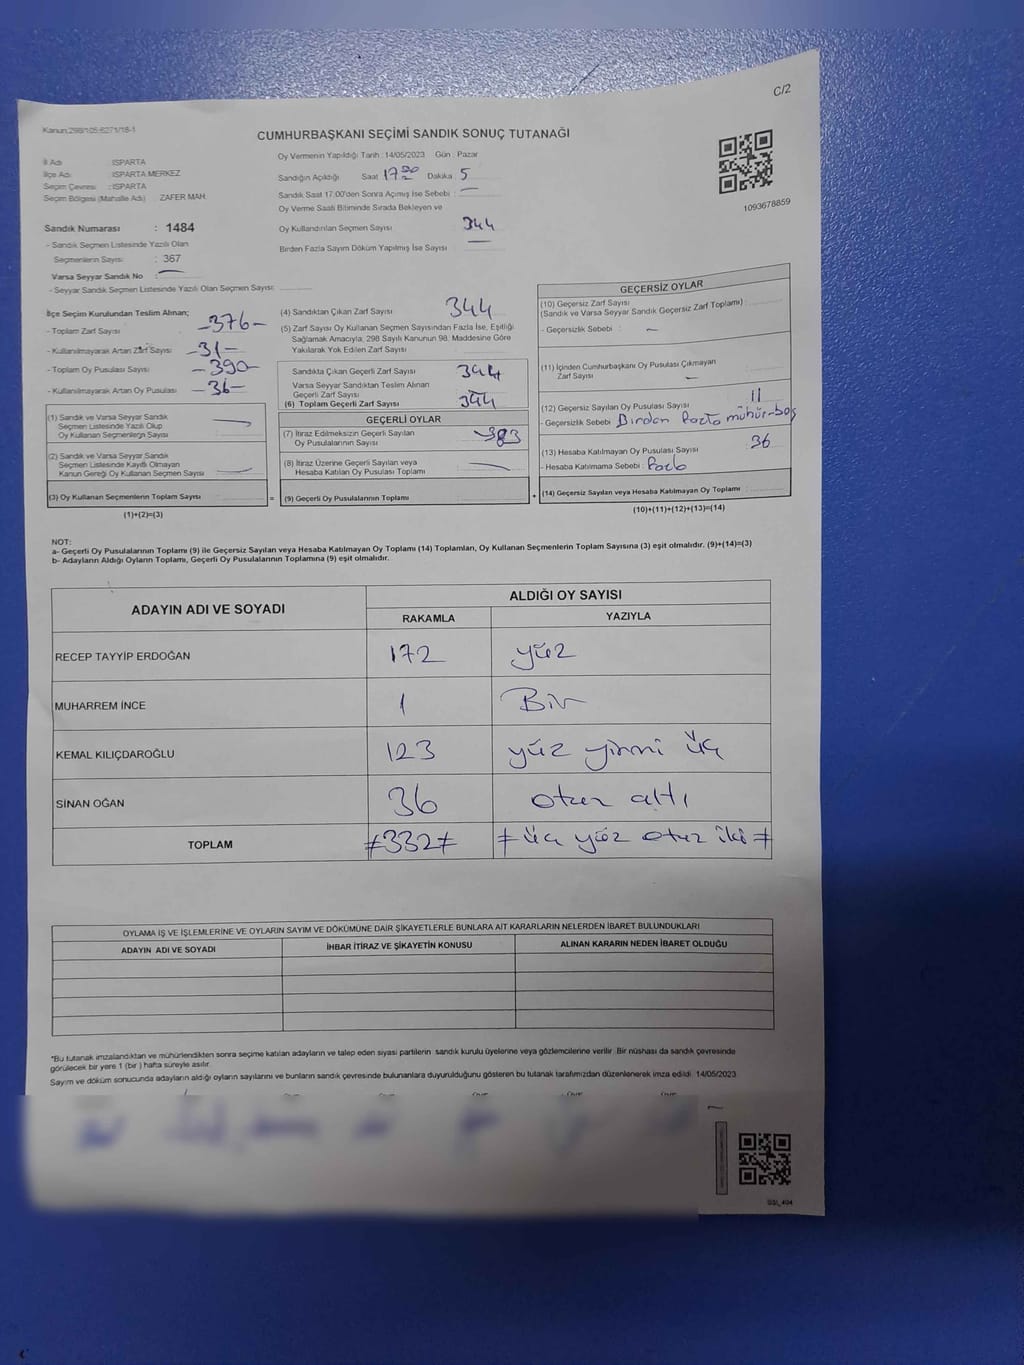 C/2
Kanun:298/105;6271/18-1
CUMHURBAŞKANI SEÇİMİ SANDIK SONUÇ TUTANAĞI
İl Adı : ISPARTA
İlçe Adı : ISPARTA MERKEZ
Seçim Çevresi : ISPARTA
Seçim Bölgesi (Mahalle Adı) : ZAFER MAH.
Oy Vermenin Yapıldığı Tarih : 14/05/2023 Gün : Pazar
Sandığın Açıldığı Saat 17:00 Dakika 5
Sandık Saat 17:00'den Sonra Açımış İse Sebebi : —
Oy Verme Saati Bitiminde Sırada Bekleyen ve
Oy Kullandırılan Seçmen Sayısı 344
Birden Fazla Sayım Döküm Yapılmış İse Sayısı —
1093678859
Sandık Numarası : 1484
- Sandık Seçmen Listesinde Yazılı Olan
Seçmenlerin Sayısı : 367
Varsa Seyyar Sandık No : —
- Seyyar Sandık Seçmen Listesinde Yazılı Olan Seçmen Sayısı:
İlçe Seçim Kurulundan Teslim Alınan;
- Toplam Zarf Sayısı : -376-
- Kullanılmayarak Artan Zarf Sayısı -31-
- Toplam Oy Pusulası Sayısı -390-
- Kullanılmayarak Artan Oy Pusulası -36-
(1) Sandık ve Varsa Seyyar Sandık
Seçmen Listesinde Yazılı Olup
Oy Kullanan Seçmenlerin Sayısı —
(2) Sandık ve Varsa Seyyar Sandık
Seçmen Listesinde Kayıtlı Olmayan
Kanun Gereği Oy Kullanan Seçmen Sayısı —
(3) Oy Kullanan Seçmenlerin Toplam Sayısı
(1)+(2)=(3)
(4) Sandıktan Çıkan Zarf Sayısı 344
(5) Zarf Sayısı Oy Kullanan Seçmen Sayısından Fazla İse, Eşitliği
Sağlamak Amacıyla, 298 Sayılı Kanunun 98. Maddesine Göre
Yakılarak Yok Edilen Zarf Sayısı
Sandıkta Çıkan Geçerli Zarf Sayısı 344
Varsa Seyyar Sandıktan Teslim Alınan
Geçerli Zarf Sayısı
(6) Toplam Geçerli Zarf Sayısı 344
GEÇERLİ OYLAR
(7) İtiraz Edilmeksizin Geçerli Sayılan
Oy Pusulalarının Sayısı
(8) İtiraz Üzerine Geçerli Sayılan veya
Hesaba Katılan Oy Pusulası Toplamı —
= (9) Geçerli Oy Pusulalarının Toplamı
GEÇERSİZ OYLAR
(10) Geçersiz Zarf Sayısı
(Sandık ve Varsa Seyyar Sandık Geçersiz Zarf Toplamı) :
- Geçersizlik Sebebi : —
(11) İçinden Cumhurbaşkanı Oy Pusulası Çıkmayan
Zarf Sayısı —
(12) Geçersiz Sayılan Oy Pusulası Sayısı 11
- Geçersizlik Sebebi : Birden fazla mühür-boş
(13) Hesaba Katılmayan Oy Pusulası Sayısı 36
- Hesaba Katılmama Sebebi :
+ (14) Geçersiz Sayılan veya Hesaba Katılmayan Oy Toplamı
(10)+(11)+(12)+(13)=(14)
NOT:
a- Geçerli Oy Pusulalarının Toplamı (9) ile Geçersiz Sayılan veya Hesaba Katılmayan Oy Toplamı (14) Toplamları, Oy Kullanan Seçmenlerin Toplam Sayısına (3) eşit olmalıdır. (9)+(14)=(3)
b- Adayların Aldığı Oyların Toplamı, Geçerli Oy Pusulalarının Toplamına (9) eşit olmalıdır.
ADAYIN ADI VE SOYADI
ALDIĞI OY SAYISI
RAKAMLA YAZIYLA
RECEP TAYYİP ERDOĞAN 172 yüz
MUHARREM İNCE 1 Bir
KEMAL KILIÇDAROĞLU 123 yüz yirmi üç
SİNAN OĞAN 36 otuz altı
TOPLAM ≠332≠ ≠ üç yüz otuz iki ≠
OYLAMA İŞ VE İŞLEMLERİNE VE OYLARIN SAYIM VE DÖKÜMÜNE DAİR ŞİKAYETLERLE BUNLARA AİT KARARLARIN NELERDEN İBARET BULUNDUKLARI
ADAYIN ADI VE SOYADI İHBAR İTİRAZ VE ŞİKAYETİN KONUSU ALINAN KARARIN NEDEN İBARET OLDUĞU
*Bu tutanak imzalandıktan ve mühürlendikten sonra seçime katılan adayların ve talep eden siyasi partilerin sandık kurulu üyelerine veya gözlemcilerine verilir. Bir nüshası da sandık çevresinde
görülecek bir yere 1 (bir ) hafta süreyle asılır.
Sayım ve döküm sonucunda adayların aldığı oyların sayılarını ve bunların sandık çevresinde bulunanlara duyurulduğunu gösteren bu tutanak tarafımızdan düzenlenerek imza edildi. 14/05/2023